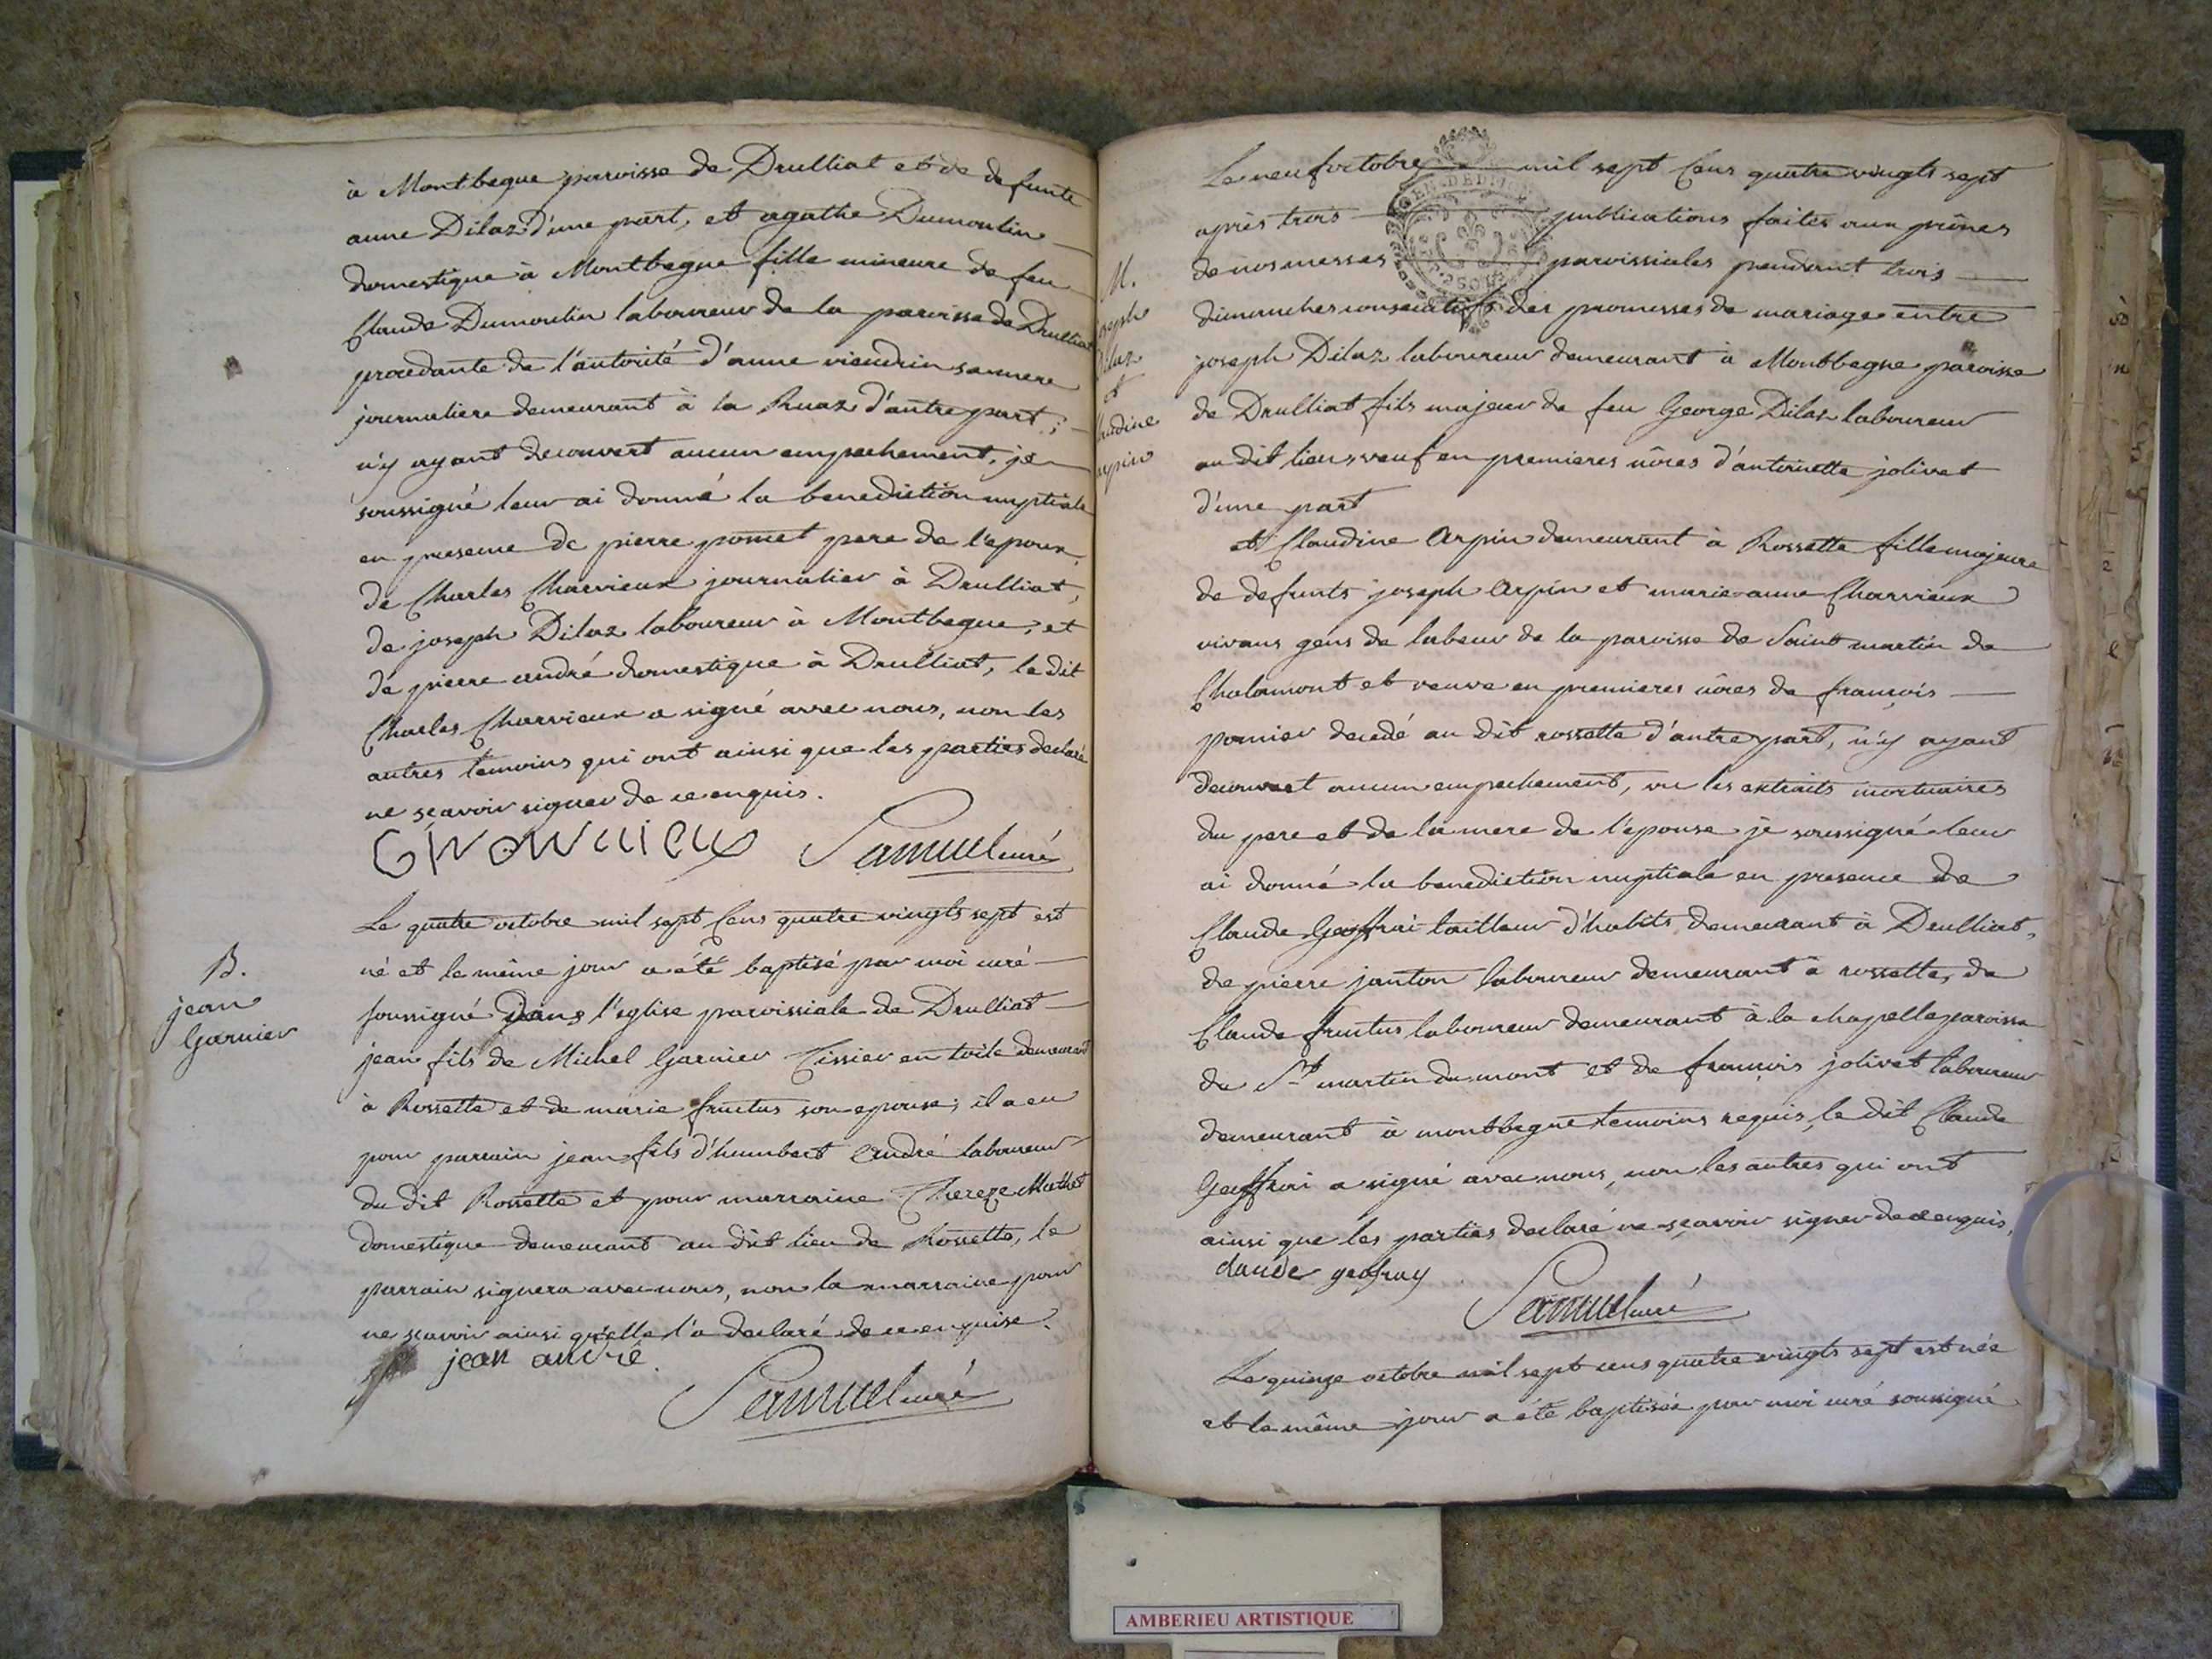 à Montbegue paroisse de Drulliat et de defunte
anne Dilaz d'une part, et agathe Dumoulin
domestique à Montbegue fille mineure de feu
Claude Dumoulin laboureur de la paroisse de Drulliat
procedante de l'autorité d'anne vieudrin sa mere
journaliere demeurant à la Ruaz d'autre part;
n'y ayant decouvert aucun empechement, je
soussigné leur ai donné la benediction nuptiale
en presence de pierre pomet pere de l'epoux,
de Charles Charvieux journalier à Drulliat,
de joseph Dilaz laboureur à Montbegue, et
de pierre andré domestique à Drulliat, le dit
Charles Charvieux a signé avec nous, non les
autres temoins qui ont ainsi que les parties declaré
ne sçavoir signer de ce enquis.
Samuel curé
B.
jean
Garnier
Le quatre octobre mil sept Cens quatre vingts sept est
né et le même jour a été baptisé par moi curé
soussigné Dans l'eglise paroissiale de Drulliat
jean fils de Michel Garnier Tissier en toile demeurant
à Rossette et de marie fructus son epouse; il a eu
pour parrain jean fils d'humbert andré laboureur
du dit Rossette et pour marraine Thereze Mathet
domestique demeurant au dit lieu de Rossette, le
parrain signera avec nous, non la marraine pour
ne sçavoir ainsi qu'elle l'a declaré de ce enquise.
jean andré.
Samuel curé
M.
joseph
Dilaz
et
Claudine
arpin
Le neuf octobre mil sept Cens quatre vingts sept
après trois publications faites aux prônes
de nos messes paroissiales pendant trois
dimanches consecutifs des promesses de mariage entre
joseph Dilaz laboureur demeurant à Montbegue paroisse
de Drulliat fils majeur de feu George Dilaz laboureur
au dit lieu, veuf en premieres nôces d'antoinette jolivet
d'une part
et Claudine Arpin demeurant à Rossette fille majeure
de defunts joseph Arpin et marie-anne Charvieux
vivans gens de labeur de la paroisse de Saint martin de
Chalamont et veuve en premieres nôces de françois
pornier decedé au dit rossette d'autre part, n'y ayant
decouvert aucun empechement, vu les extraits mortuaires
du pere et de la mere de l'epouse je soussigné leur
ai donné la benediction nuptiale en presence de
Claude Geoffrai tailleur d'habits demeurant à Drulliat,
de pierre janton laboureur demeurant à rossette, de
Claude fructus laboureur demeurant à la chapelle paroisse
de St martin du mont et de françois jolivet laboureur
demeurant à montbegue temoins requis, le dit Claude
Geoffrai a signé avec nous, non les autres qui ont
ainsi que les parties declaré ne sçavoir signer de ce enquis,
claude geofray
Samuel curé
Le quinze octobre mil sept cens quatre vingts sept est née
et le même jour a été baptisée par moi curé soussigné
AMBERIEU ARTISTIQUE